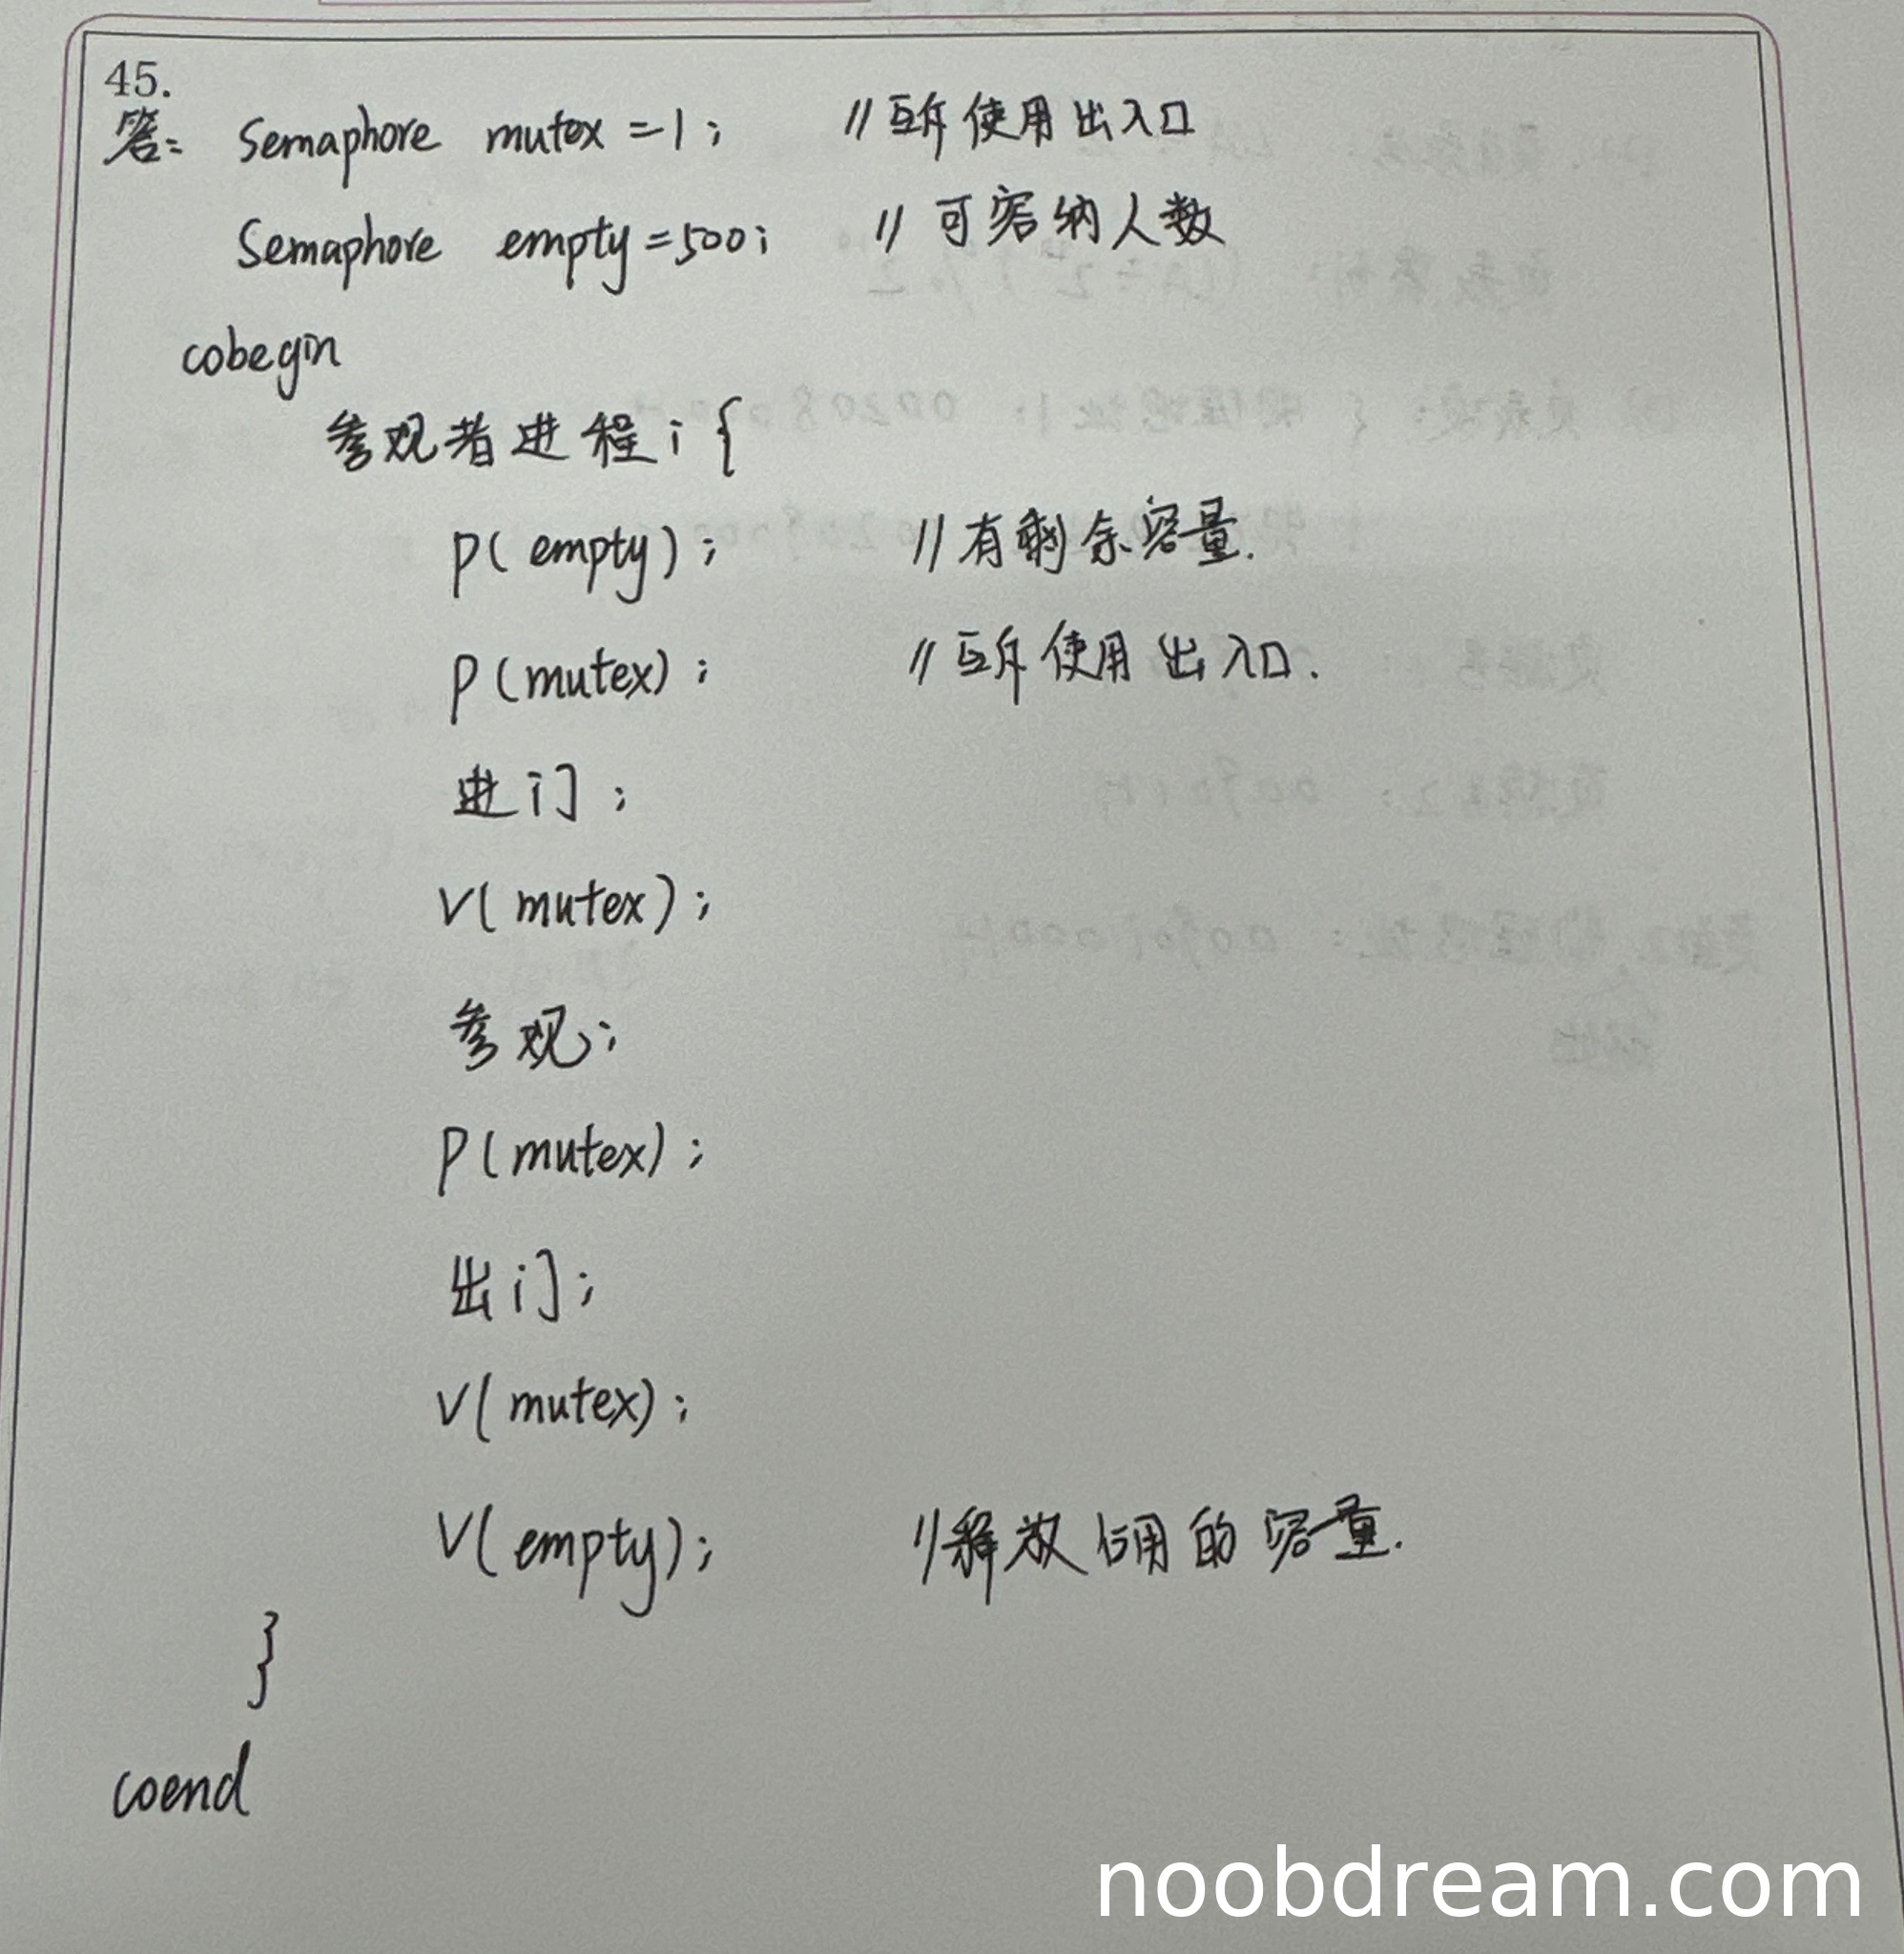 45.
答: Semaphore mutex = 1; // 互斥使用出入口
Semaphore empty = 500; // 可容纳人数
cobegin
参观者进程 i {
P( empty ); // 有剩余容量.
P( mutex ); // 互斥使用出入口.
进门;
V( mutex );
参观;
P( mutex );
出门;
V( mutex );
V( empty ); // 释放占用的容量.
}
coend
noobdream.com